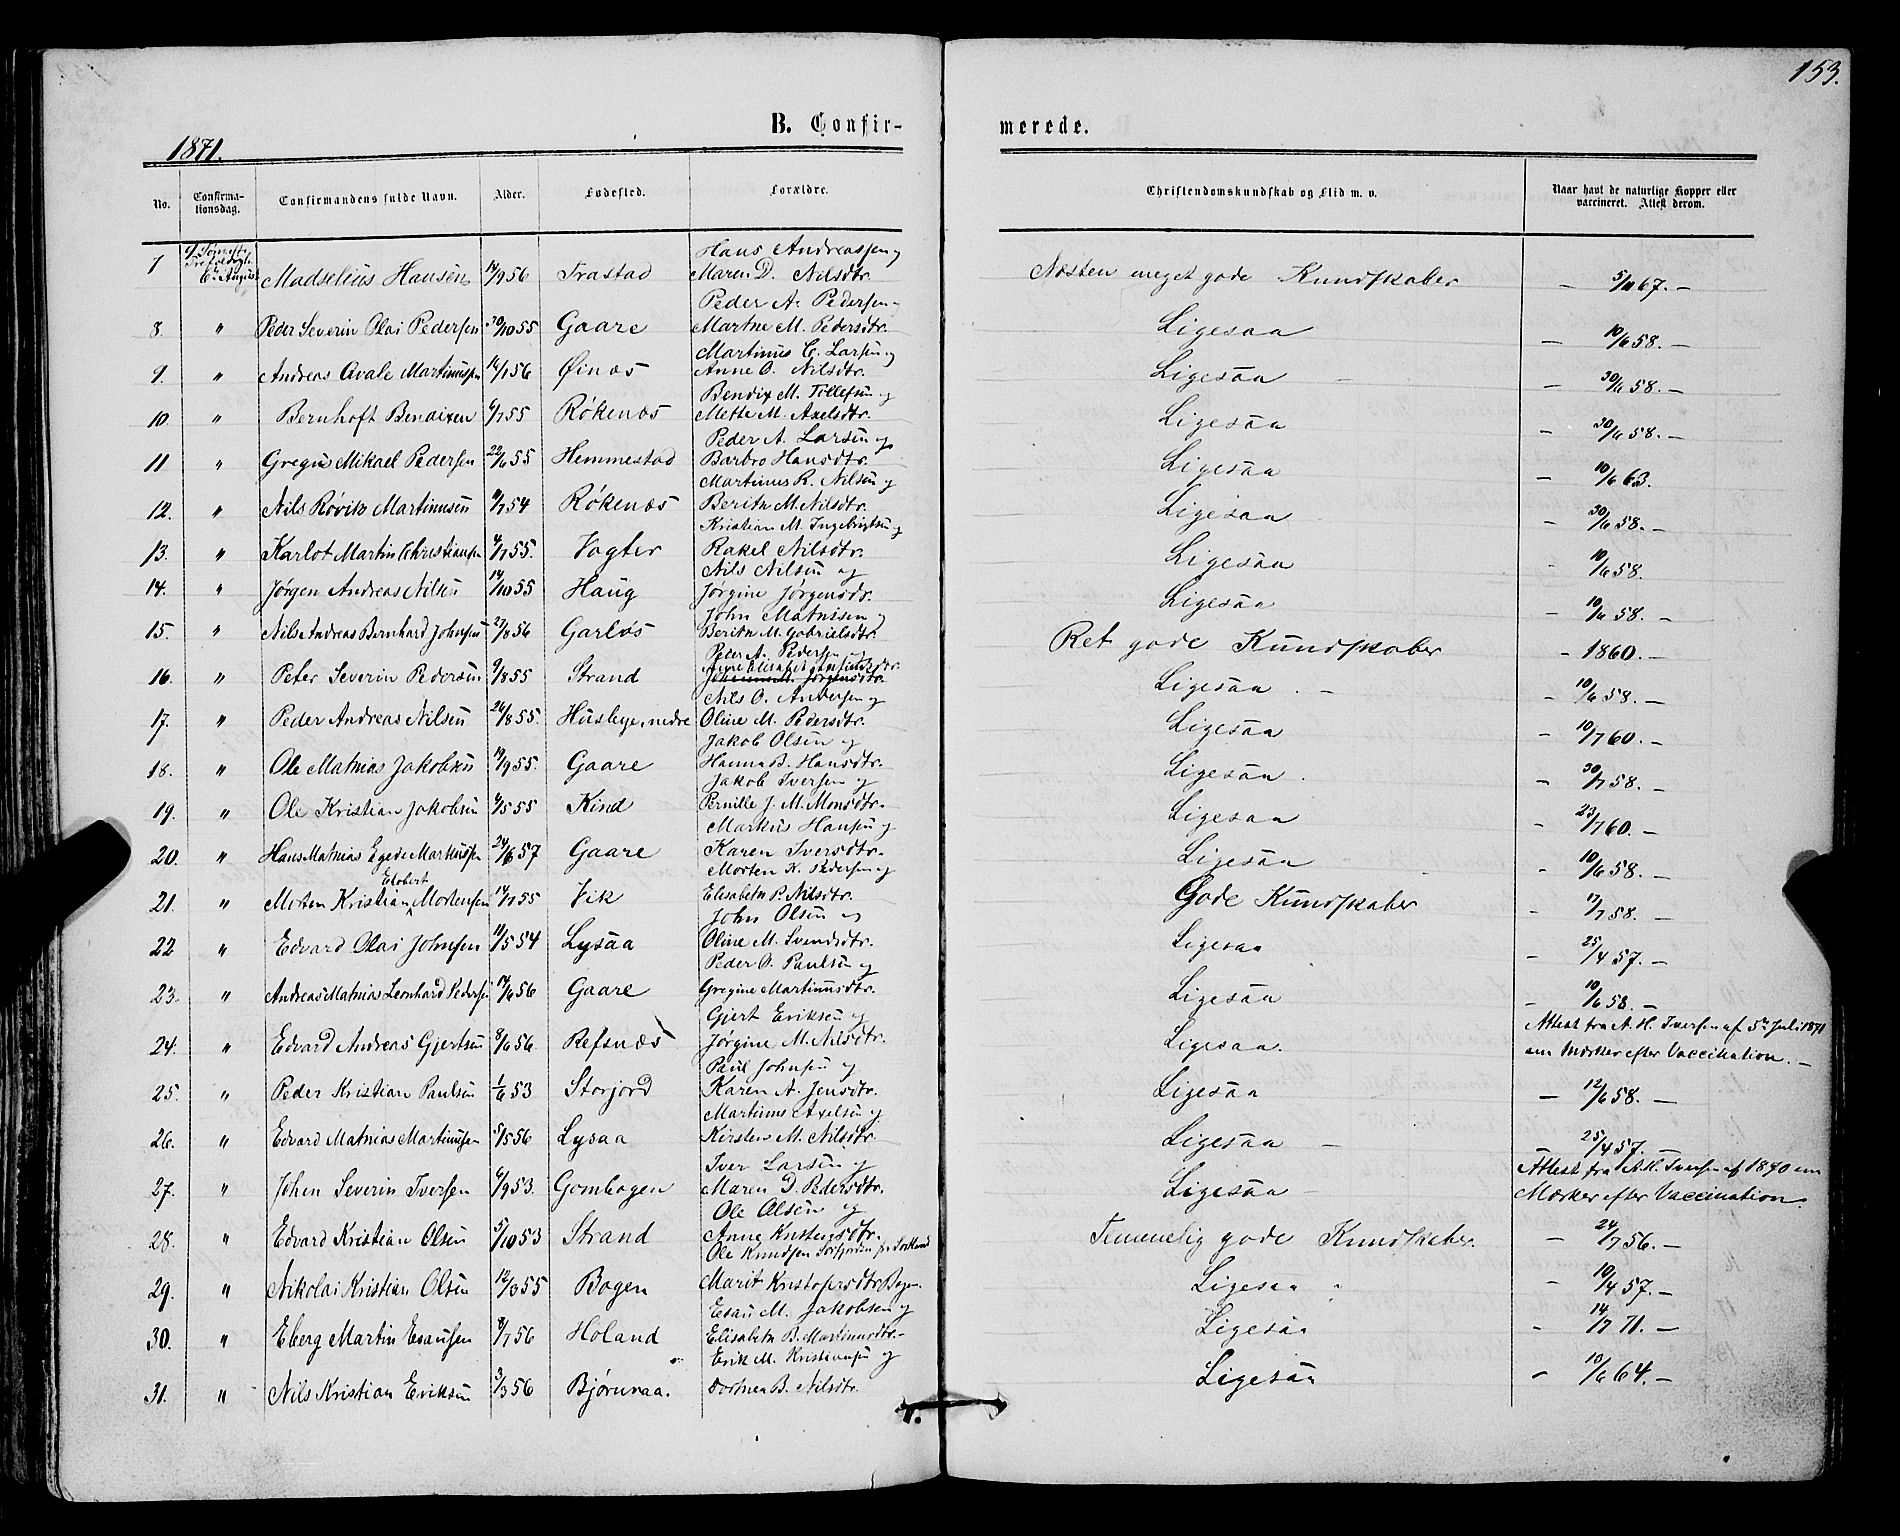 153.
B. Confirmerede.
1871.
No. Confirmationsdag. Confirmandens fulde Navn. Alder. Fødested. Forældre. Christendomskundskab og Flid m. v. Naar havt de naturlige Kopper eller vaccineret. Attest derom.
Hans Andreassen og
7 Madseleus Hansen 14/9 56 Trastad Maren D. Nilsdtr. Næsten meget gode Kundskaber – 5/11 67. –
Peder A. Pedersen og
8. " Peder Severin Olai Pedersen 30/10 55 Gaare Martha M. Pedersdtr. Ligesaa – 10/6 58. –
Martinus C. Larsen og
9. " Andreas Avale Martinussen 14/1 56 Øinæs Anne O. Nilsdtr. Ligesaa – 30/6 58. –
Bendix M. Tollefsen og
10. " Bernhoft Bendixen 6/7 55 Røkenæs Mette M. Axelsdtr. Ligesaa – 30/6 58. –
Peder A. Larsen og
11 " Gregus Mikael Pedersen 22/6 55 Hemmestad Barbro Hansdtr. Ligesaa – 10/6 63.
Martinus R. Nilsen og
12. " Nils Røvik Martinusen 11/7 54 Røkenæs Beritha M. Nilsdtr. Ligesaa – 30/6 58. –
Kristian M. Ingebrigtsen og
13. " Karlot Martin Christiansen 4/7 55. Vogter Rakel Nilsdtr. Ligesaa – 10/6 58.
Nils Nilsen og
14. " Jørgen Andreas Nilsen 14/10 55 Haug Jørgine Jørgensdtr. Ligesaa – 10/6 58. –
John Mathisen og
15. " Nils Andreas Bernhard Johnsen 27/8 56 Garløs Beritha M. Gabrielsdtr. Ret gode Kundskaber – 1860. –
Peder A. Pedersen
16. " Peter Severin Pedersen 9/8 55 Strand Ligesaa – 10/6 58. –
Nils O. Andersen og
17. " Peder Andreas Nilsen 26/8 55. Husbye, nedre Oline M. Pedersdtr. Ligesaa – 10/7 60. –
Jakob Olsen og
18. " Ole Mathias Jakobsen 19/9 55. Gaare Hanna B. Hansdtr. Ligesaa – 30/7 58. –
Jakob Iversen og
19. " Ole Kristian Jakobsen 6/5 55 Kind Pernille J. M. Monsdtr. Ligesaa – 23/7 60. –
Markus Hansen og
20. " Hans Mathias Egede Markussen 24/6 57 Gaare Karen Iversdtr. Ligesaa – 10/6 58. –
Morten K. Pedersen og
Edobert
21. " Morten Kristian Mortensen 14/7 55 Vik Elisabeth P. Nilsdtr. Gode Kundskaber – 17/7 58. –
John Olsen og
22 " Edvard Olai Johnsen 11/5 54 Lysaa Oline M. Svendsdtr. Ligesaa – 25/4 57. –
Peder O. Paulsen og
23. " Andreas Mathias Leonhard Pedersen 14/6 56 Gaare Gregine Martinusdtr. Ligesaa – 10/6 58. –
Gjert Eriksen og Attest fra A. H. Iversen af 5te Juli 1871
24. " Edvard Andreas Gjertsen 8/6 56. Refsnæs Jørgine M. Nilsdtr. Ligesaa. om Mærker efter Vaccination. –
Paul Johnsen og
25. " Peder Kristian Paulsen 1/6 53 Storjord Karen A. Jensdtr. Ligesaa – 12/6 58. –
Martinus Axelsen og
26. " Edvard Mathias Martinussen 5/5 56 Lysaa Kirsten M. Nilsdtr. Ligesaa – 25/4 57. –
Iver Larsen og Attest fra A. H. Iversen af 1870 om
27. " Johan Severin Iversen 6/9 53. Gombogen Maren D. Pedersdtr. Ligesaa – Mærker efter Vaccination.
Ole Olsen og
28. " Edvard Kristian Olsen 5/10 53 Strand Anne Knutsdtr. Temmelig gode Kundskaber. – 24/7 56. –
Ole Knudsen
29. " Nikolai Kristian Olsen 12/3 55 Bogen Marit Kristofersdtr. Bogen. Ligesaa – 10/4 57. –
Esau M. Jakobsen og
30. " Eberg Martin Esausen 8/7 56 Holand Elisabeth B. Martinusdtr. – Ligesaa – 14/7 71. –
Erik M. Kristiansen og
31. " Nils Kristian Eriksen 3/3 56 Bjørnraa. Dorthea B. Nilsdtr. Ligesaa – 10/6 64. –